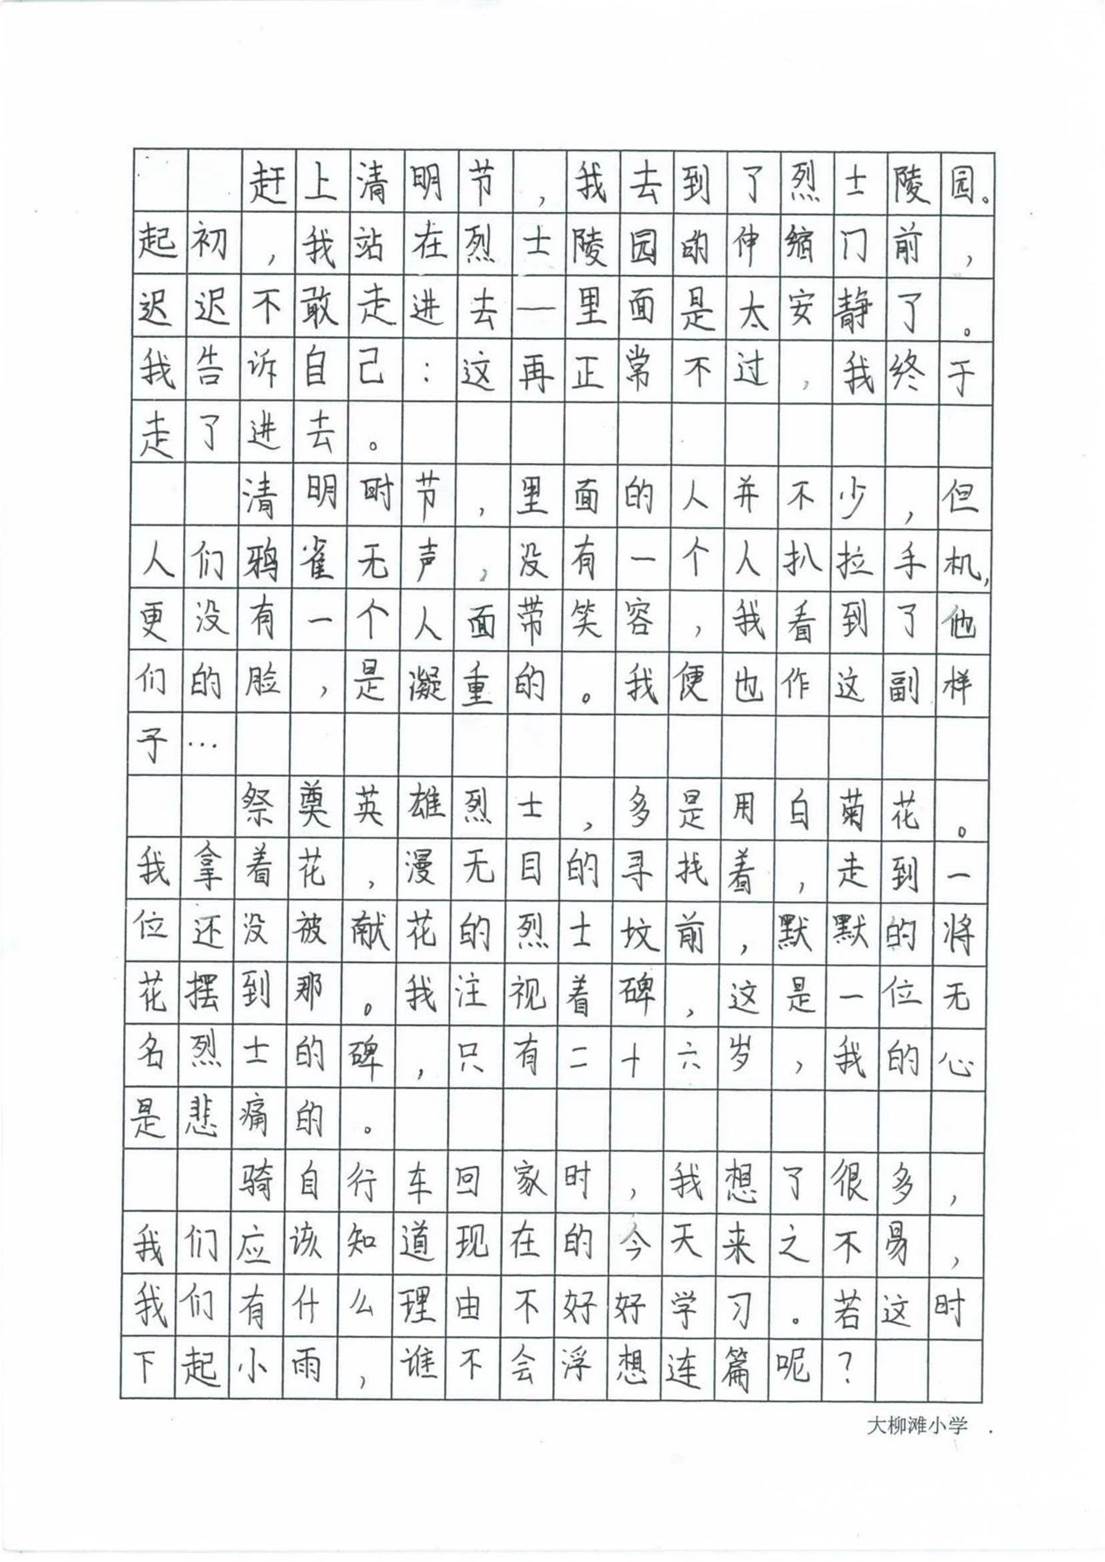 赶上清明节，我去到了烈士陵园。
起初，我站在烈士陵园的伸缩门前，
迟迟不敢走进去—里面是太安静了。
我告诉自己：这再正常不过，我终于
走了进去。
清明时节，里面的人并不少，但
人们鸦雀无声，没有一个人扒拉手机，
更没有一个人面带笑容，我看到了他
们的脸，是凝重的。我便也作这副样
子…
祭奠英雄烈士，多是用白菊花。
我拿着花，漫无目的寻找着，走到一
位还没被献花的烈士坟前，默默的将
花摆到那。我注视着碑，这是一位无
名烈士的碑，只有二十六岁，我的心
是悲痛的。
骑自行车回家时，我想了很多，
我们应该知道现在的今天来之不易，
我们有什么理由不好好学习。若这时
下起小雨，谁不会浮想连篇呢？
大柳滩小学